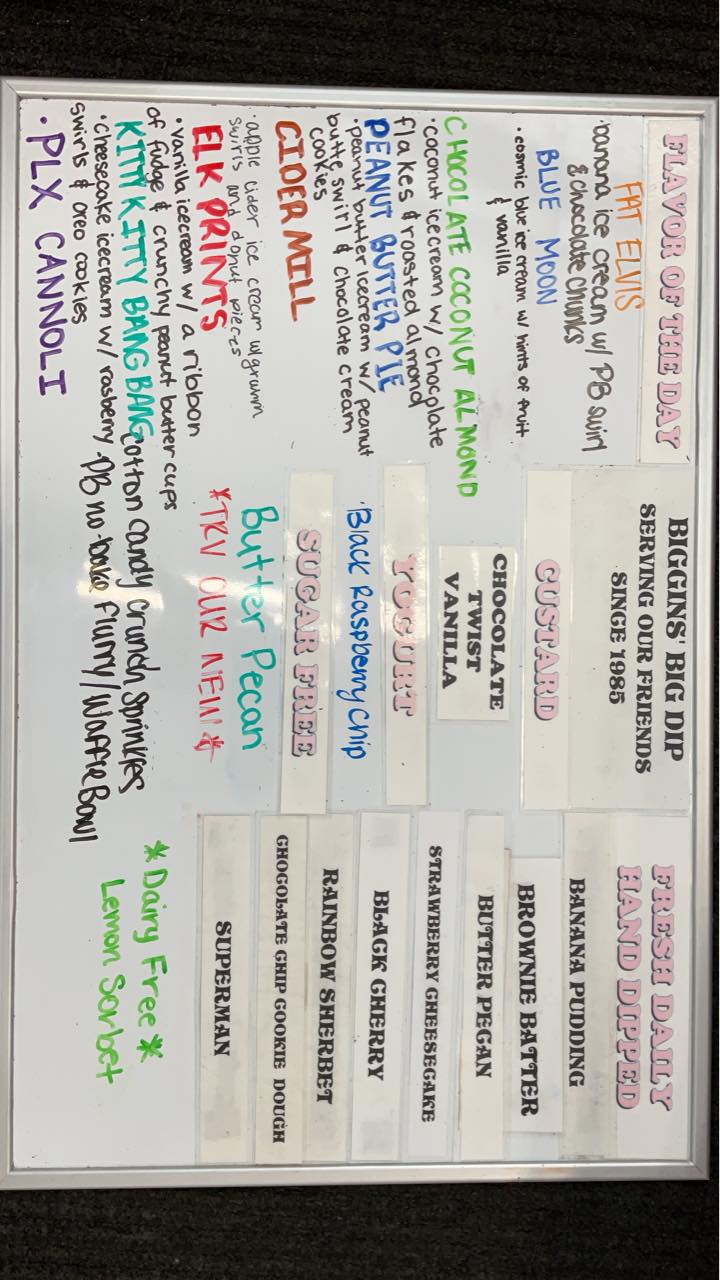 FLAVOR OF THE DAY
FAT ELVIS
banana ice cream w/ PB swirl
& chocolate chunks
BLUE MOON
• cosmic blue ice cream w/ hints of fruit
& vanilla
CHOCOLATE COCONUT ALMOND
• coconut icecream w/ chocolate
flakes & roasted almond
PEANUT BUTTER PIE
• peanut butter icecream w/ peanut
butte swirl & chocolate cream
cookies
CIDER MILL
• apple cider ice cream w/ graham
swirls and donut pieces
ELK PRINTS
• vanilla icecream w/ a ribbon
of fudge & crunchy peanut butter cups
KITTY KITTY BANG BANG
• cheesecake icecream w/ rasberry
swirls & oreo cookies
• PLX CANNOLI
BIGGINS' BIG DIP
SERVING OUR FRIENDS
SINGE 1985
CUSTARD
CHOCOLATE
TWIST
VANILLA
YOGURT
• Black Raspberry Chip
SUGAR FREE
Butter Pecan
*TRY OUR NEW*
Cotton Candy Crunch Sprinkles
PB no bake flurry/Waffle Bowl
FRESH DAILY
HAND DIPPED
BANANA PUDDING
BROWNIE BATTER
BUTTER PEGAN
STRAWBERRY GHEESEGAKE
BLAGK GHERRY
RAINBOW SHERBET
GHOGOLATE GHIP GOOKIE DOUGH
SUPERMAN
* Dairy Free *
Lemon Sorbet